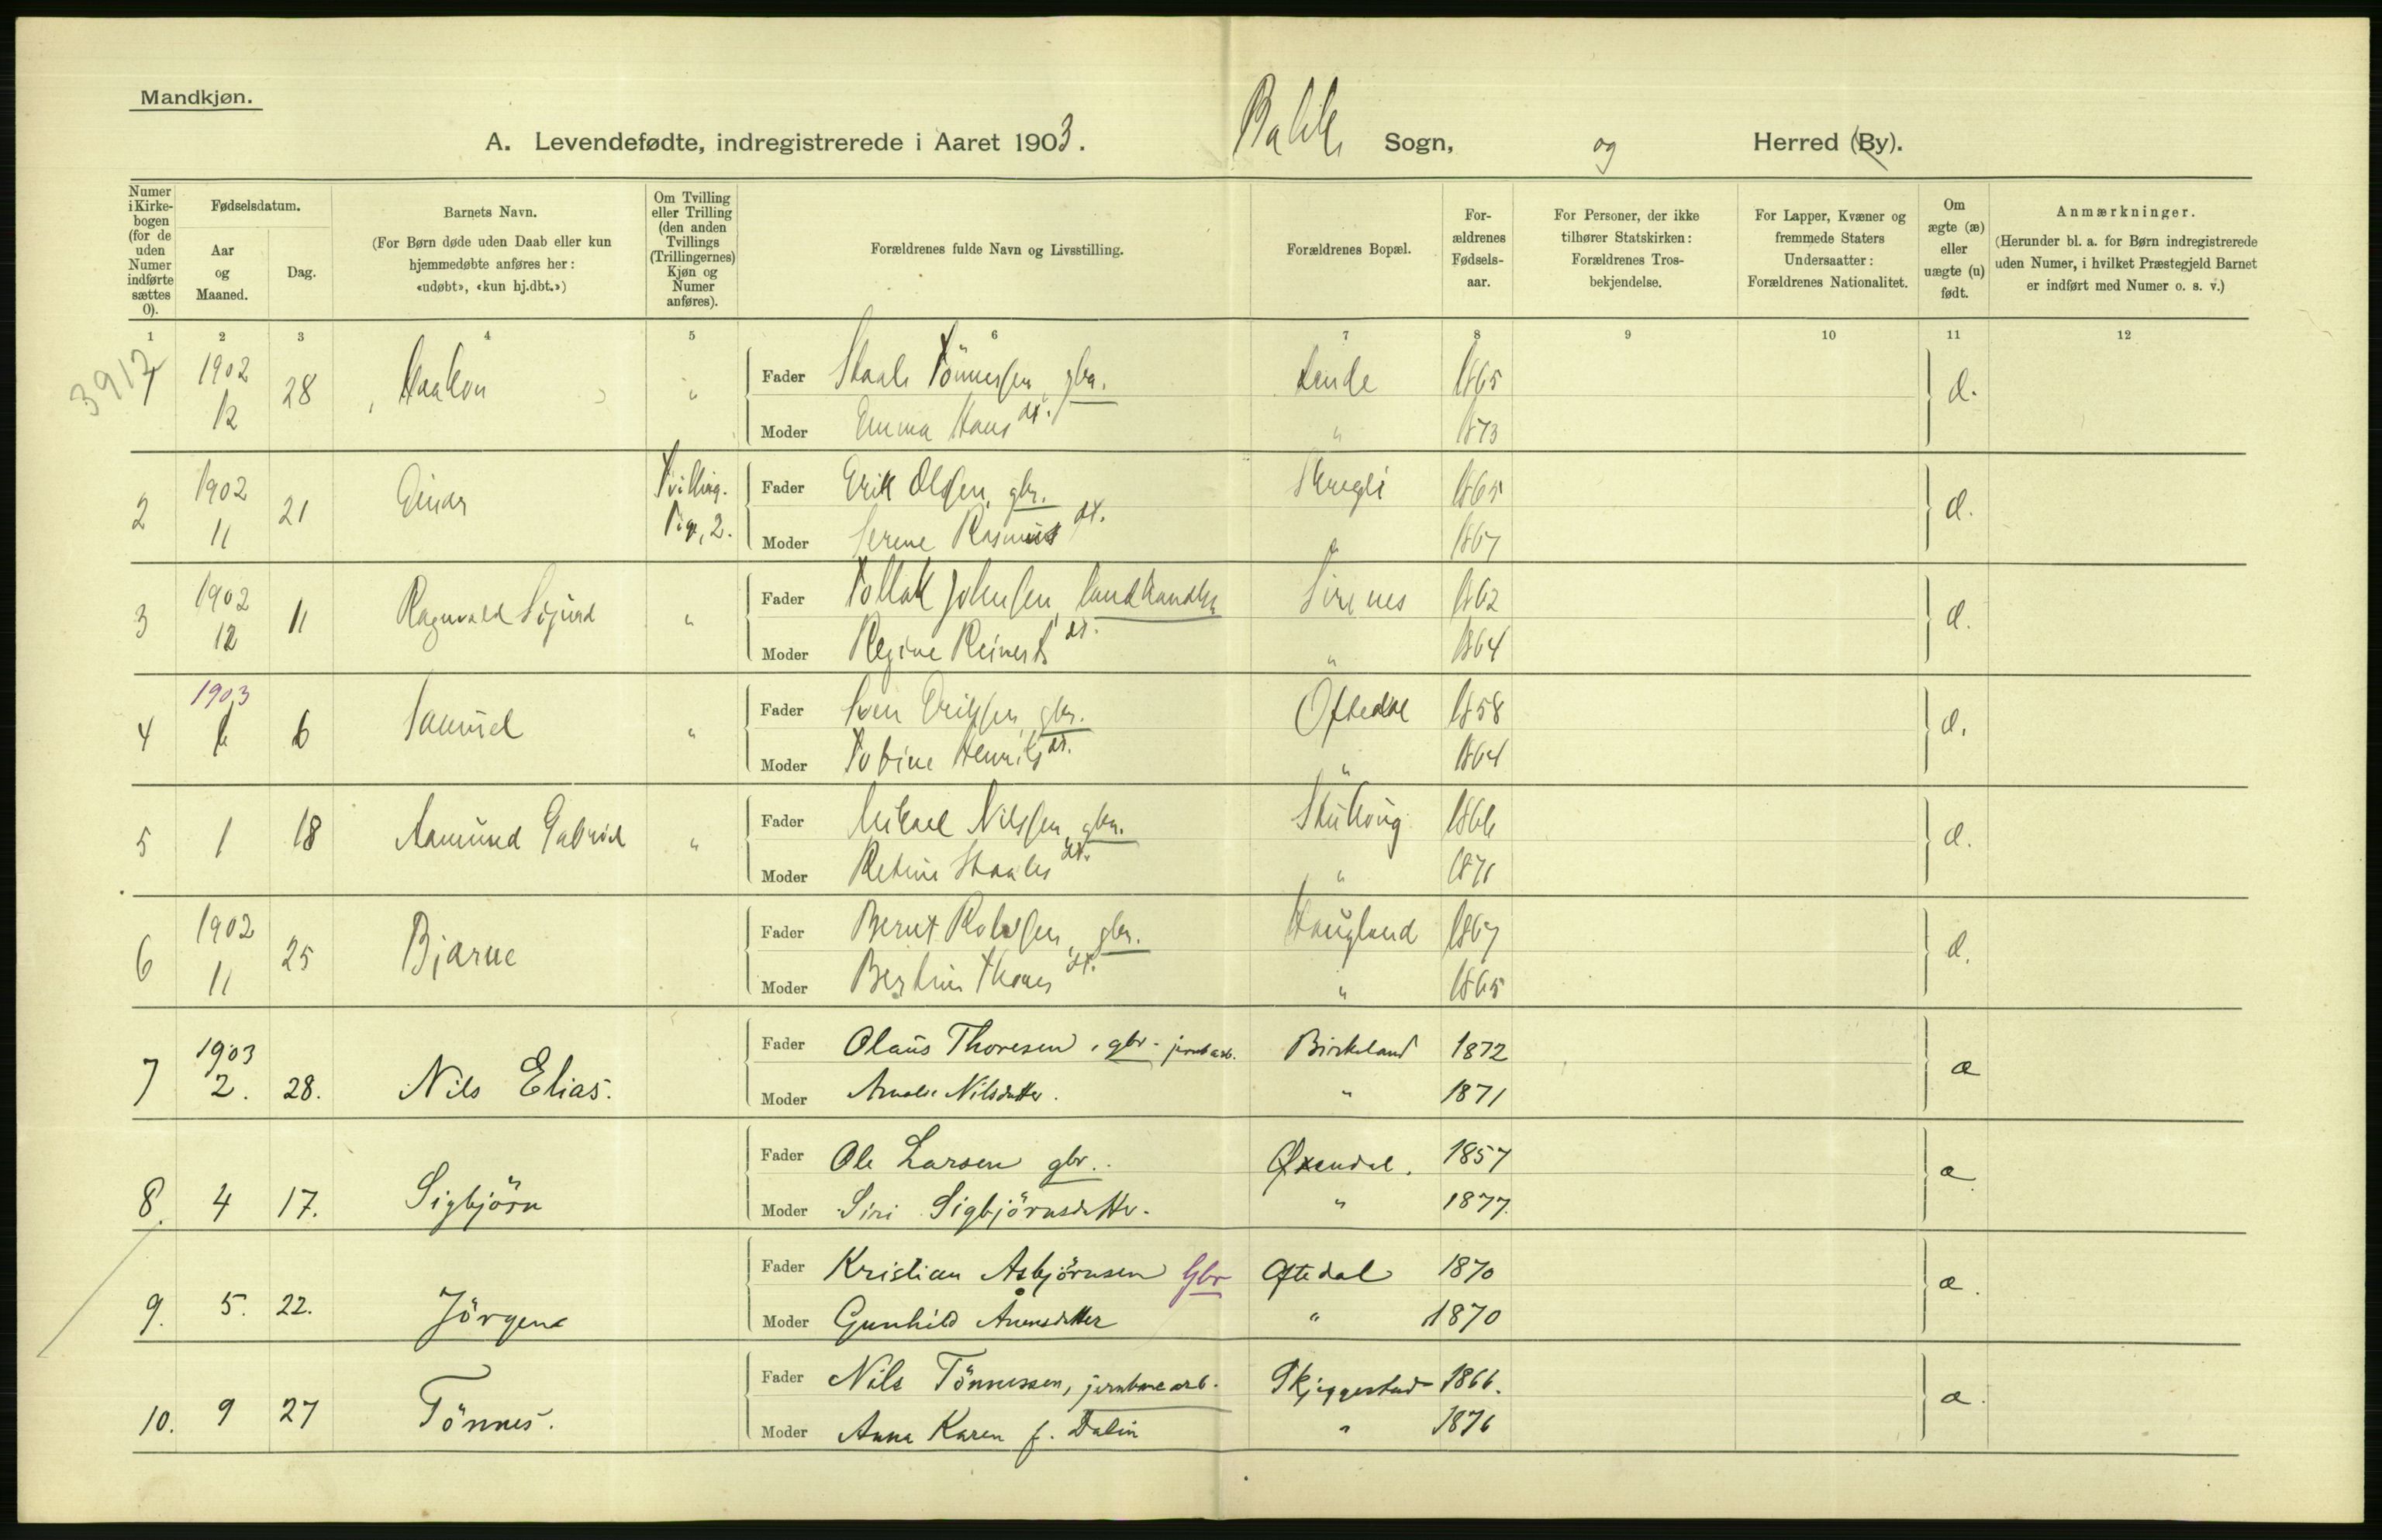 Mandkjøn.
A. Levendefødte, indregistrerede i Aaret 1903. Bakke Sogn, og Herred (By).
Numer i Kirkebogen (for de uden Numer indførte sættes 0).
Fødselsdatum.
Aar og Maaned.
Dag.
Barnets Navn.
(For Børn døde uden Daab eller kun hjemmedøbte anføres her: «udøbt», «kun hj.dbt.»)
Om Tvilling eller Trilling (den anden Tvillings (Trillingernes) Kjøn og Numer anføres).
Forældrenes fulde Navn og Livsstilling.
Forældrenes Bopæl.
Forældrenes Fødselsaar.
For Personer, der ikke tilhører Statskirken: Forældrenes Trosbekjendelse.
For Lapper, Kvæner og fremmede Staters Undersaatter: Forældrenes Nationalitet.
Om ægte (æ) eller uægte (u) født.
Anmærkninger.
(Herunder bl. a. for Børn indregistrerede uden Numer, i hvilket Præstegjeld Barnet er indført med Numer o. s. v.)
1 2 3 4 5 6 7 8 9 10 11 12
3912
1 1902 12 28 Haakon " Fader Staale Tönnessen gbr. Lende 1865 æ.
Moder Emma Hans dt. " 1873
2 1902 11 21 Einar Tvilling. Pige, 2. Fader Erik Olsen, gbr. 1865 æ.
Moder Serene Rasmus dt. " 1867
3 1902 12 11 Ragnvald Sigurd " Fader Tollak Johnsen, landhandler Sirenes 1862 æ.
Moder Regine Reinerts dt. " 1864
4 1903 1 6 Samuel " Fader Sven Eriksen gbr. Oftedal 1858 æ.
Moder Tobine Henriks dt. " 1864
5 1 18 Aamund Gabriel " Fader Mikael Nilssen, gbr. 1866 æ.
Moder Staales dt. " 1871
6 1902 11 25 Bjarne Fader Bernt gbr. Haugland 1867 æ.
Moder Bertine dt. " 1865
7 1903 2. 28. Nils Elias. Fader Olaus Thoresen, gbr - jernb arb. Birkeland 1872 æ
Moder Amalie Nilsdatter. " 1871
8. 4 17. Sigbjörn Fader Ole Larsen gbr. Øxendal. 1857 æ
Moder Siri Sigbjörnsdatter. " 1877
9. 5. 22. Jörgen Fader Kristian Asbjörnsen Gbr Oftedal 1870 æ.
Moder Gunhild Ånensdatter " 1870
10. 9 27 Tönnes. Fader Nils Tönnessen, jernbane arb. Skjeggestad 1866. æ.
Moder Anna Karen f. Dalin " 1876